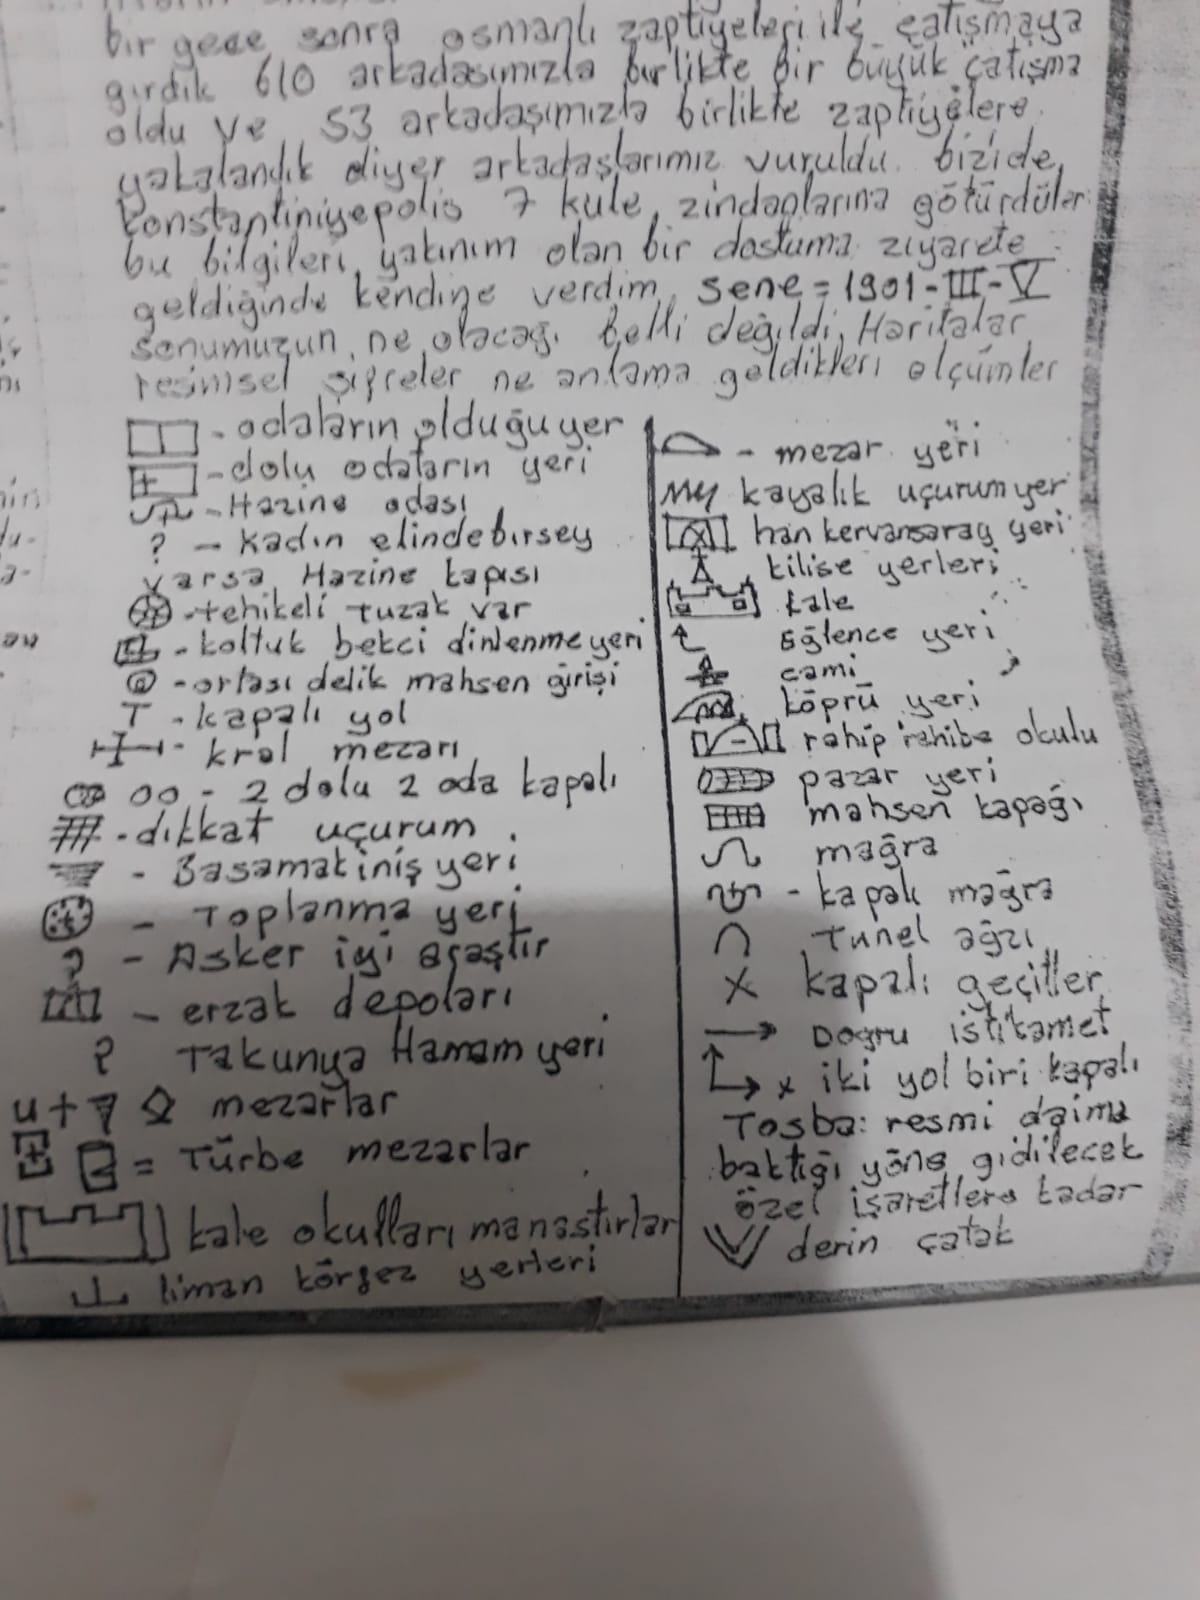 bir gece sonra osmanlı zaptiyeleri ile çatışmaya
girdik 610 arkadasımızla birlikte bir büyük çatışma
oldu ve 53 arkadaşımızla birlikte zaptiyelere
yakalandık diyer arkadaşlarımız vuruldu bizide
konstantiniyepolis 7 kule, zindanlarına götürdüler
bu bilgileri, yakınım olan bir dostuma ziyarete
geldiğinde kendine verdim, sene = 1901-III-V
sonumuzun ne olacağı belli değildi, Haritalar
resimsel şifreler ne anlama geldikleri ölçümler
- odaların olduğu yer
- dolu odaların yeri
- Hazine odası
? - kadın elinde birsey
varsa Hazine kapısı
- tehikeli tuzak var
- koltuk bekci dinlenme yeri
- ortası delik mahsen girişi
T - kapalı yol
- kral mezarı
OO - 2 dolu 2 oda kapalı
- dikkat uçurum
- Basamak iniş yeri
- Toplanma yeri
- Asker iyi araştır
- erzak depoları
? Takunya Hamam yeri
u + mezarlar
= Türbe mezarlar
kale okulları manastırlar
liman körfez yerleri
- mezar yeri
MY kayalık uçurum yer
han kervansaray yeri
kilise yerleri
kale
Eğlence yeri
cami
köprü yeri
rahip rahibe okulu
pazar yeri
mahsen kapağı
mağra
- kapalı mağra
Tunel ağzı
X kapalı geçitler
→ Doğru istikamet
x iki yol biri kapalı
Tosba: resmi daima
baktığı yöne gidilecek
özel işaretlere kadar
derin çatak